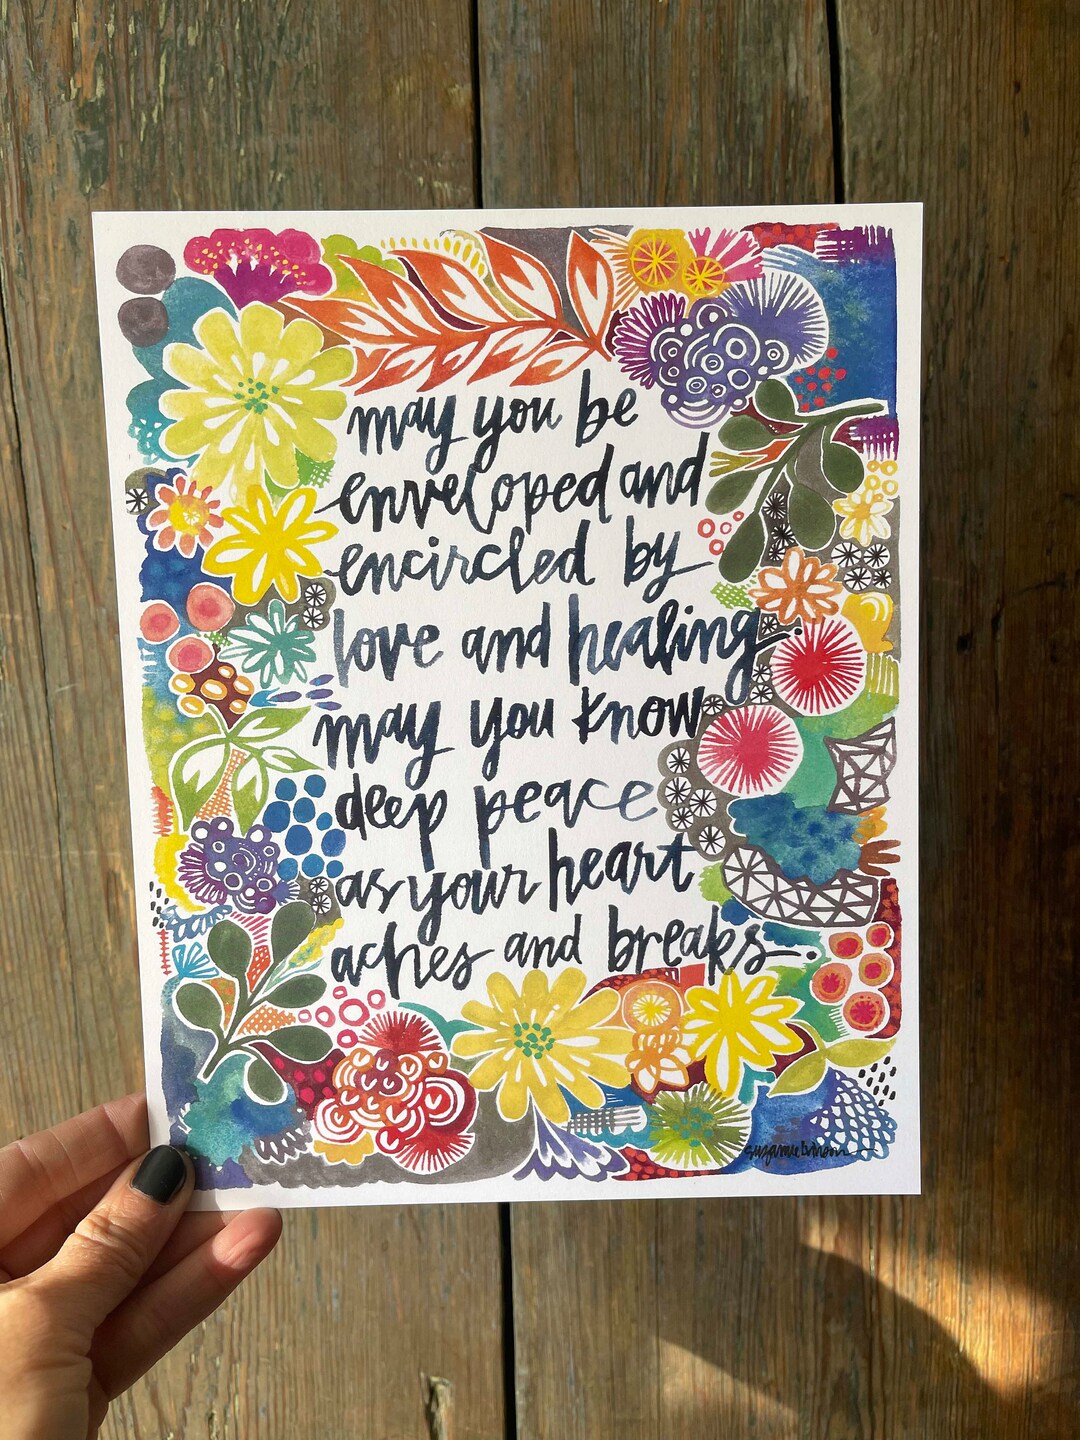 may you be
enveloped and
encircled by
love and healing.
may you know
deep peace
as your heart
aches and breaks.